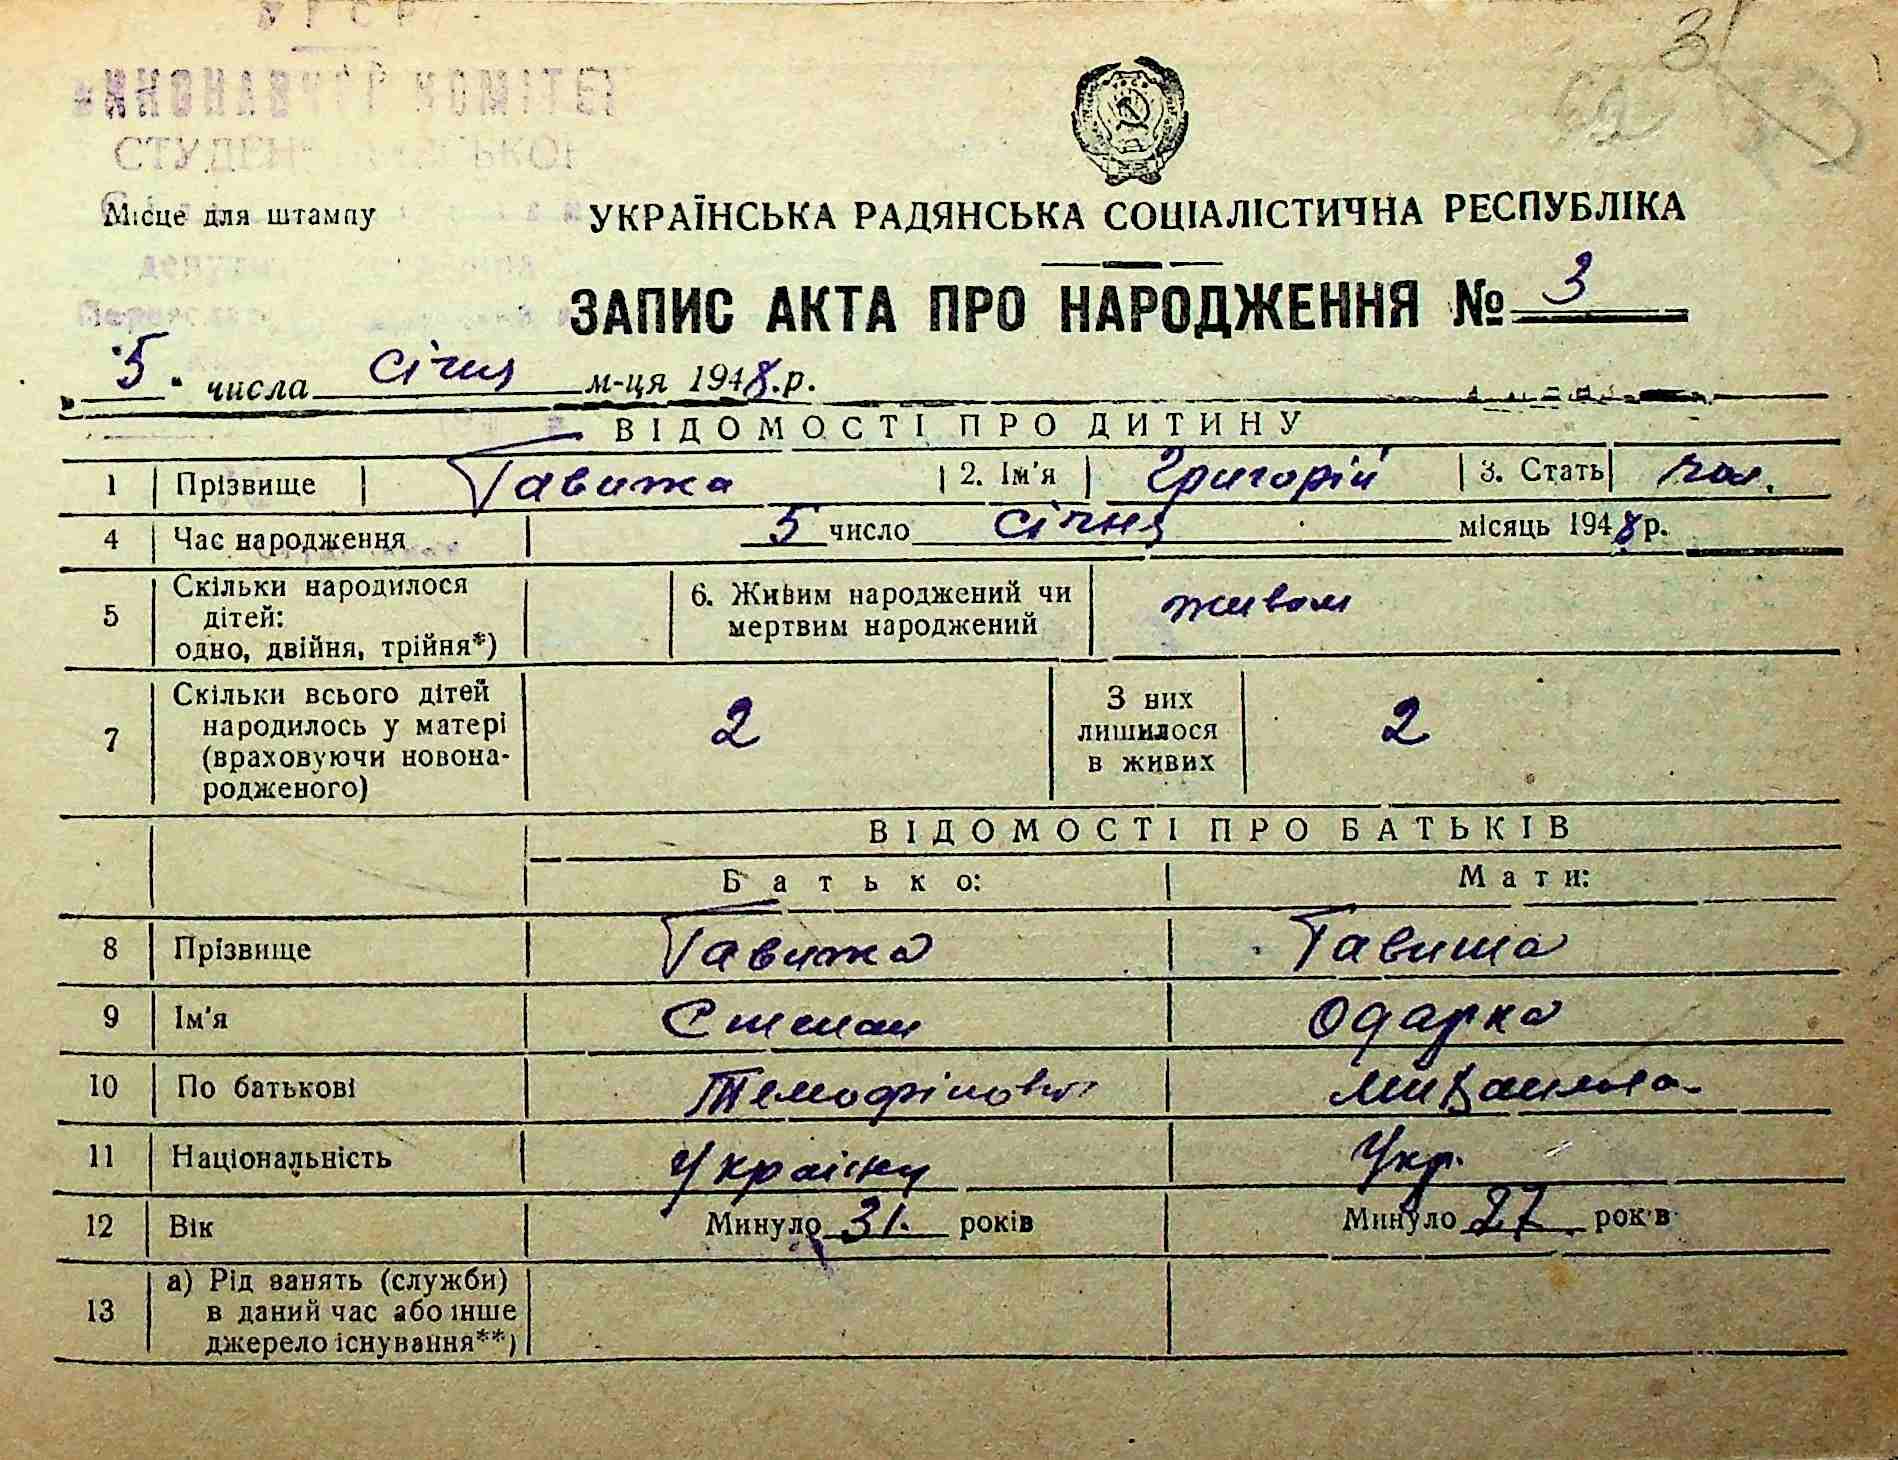 УРСР
ВИКОНАВЧИЙ КОМІТЕТ
Місце для штампу
3
УКРАЇНСЬКА РАДЯНСЬКА СОЦІАЛІСТИЧНА РЕСПУБЛІКА
ЗАПИС АКТА ПРО НАРОДЖЕННЯ № 3
„5" числа січня м-ця 1948.р.
ВІДОМОСТІ ПРО ДИТИНУ
1 Прізвище Гавижа 2. Ім'я Григорій 3. Стать чол.
4 Час народження 5 число січня місяць 1948 р.
5 Скільки народилося дітей: одно, двійня, трійня*) 6. Живим народжений чи мертвим народжений живом
7 Скільки всього дітей народилось у матері (враховуючи новонародженого) 2 З них лишилося в живих 2
ВІДОМОСТІ ПРО БАТЬКІВ
Батько: Мати:
8 Прізвище Гавижа Гавиша
9 Ім'я Степан Одарка
10 По батькові
11 Національність Українц Укр.
12 Вік Минуло 31. років Минуло 27 років
13 а) Рід занять (служби) в даний час або інше джерело існування**)